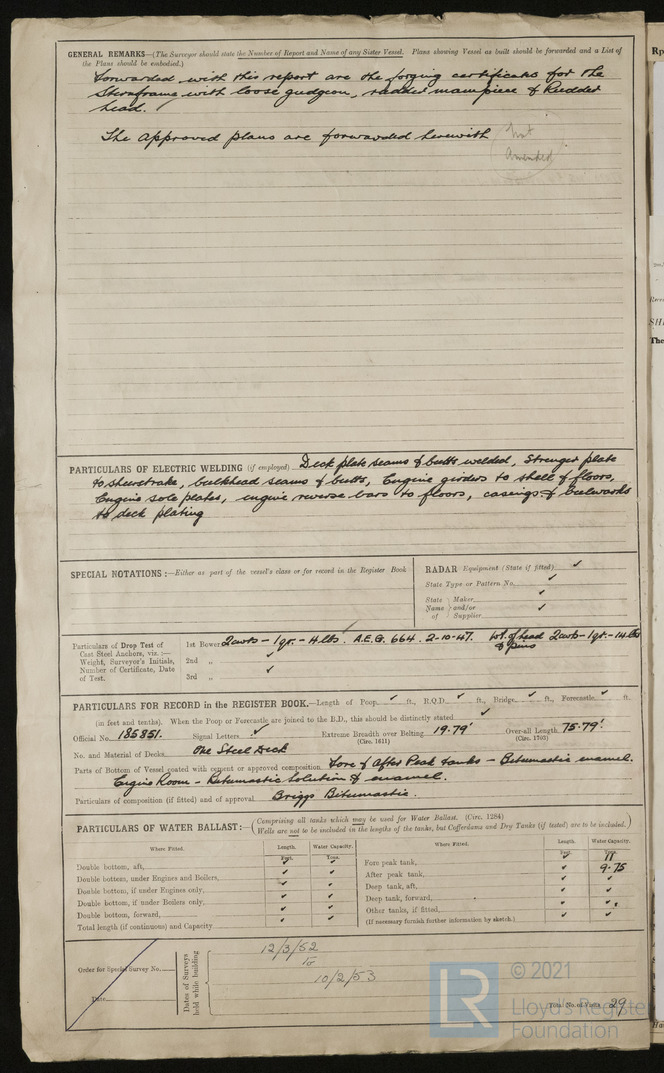 GENERAL REMARKS—(The Surveyor should state the Number of Report and Name of any Sister Vessel. Plans showing Vessel as built should be forwarded and a List of
the Plans should be embodied.)
Forwarded with this report are the forging certificates for the
Sternframe with loose gudgeon, rudder mainpiece & Rudder
head.
The approved plans are forwarded herewith
Not
Amended
PARTICULARS OF ELECTRIC WELDING (if employed) Deck plate seams & butts welded, Stringer plate
to sheerstrake, bulkhead seams & butts, Engine girders to shell & floors,
Engine sole plates, engine reverse bars to floors, casings & bulwarks
to deck plating
SPECIAL NOTATIONS:—Either as part of the vessel's class or for record in the Register Book
RADAR Equipment (State if fitted) ✓
State Type or Pattern No. ✓
State Maker ✓
Name and/or ✓
of Supplier
Particulars of Drop Test of
Cast Steel Anchors, viz.:—
Weight, Surveyor's Initials,
Number of Certificate, Date
of Test.
1st Bower 2cwts – 1qr. – 4lbs. A.E.G. 664. 2-10-47. Wt. of head 2cwts – 1qr – 14lbs
& pins
2nd „ ✓
3rd „
PARTICULARS FOR RECORD in the REGISTER BOOK.—Length of Poop ✓ ft., R.Q.D. ✓ ft., Bridge ✓ ft., Forecastle ✓ ft.
(in feet and tenths). When the Poop or Forecastle are joined to the B.D., this should be distinctly stated ✓
Official No. 185851. Signal Letters ✓ Extreme Breadth over Belting 19.79' Over-all Length 75.79'
(Circ. 1611) (Circ. 1703)
No. and Material of Decks One Steel Deck
Parts of Bottom of Vessel coated with cement or approved composition Fore & After Peak tanks – Bitumastic enamel.
Engine Room – Bitumastic Solution & enamel.
Particulars of composition (if fitted) and of approval Briggs Bitumastic.
PARTICULARS OF WATER BALLAST:—(Comprising all tanks which may be used for Water Ballast. (Circ. 1284)
Wells are not to be included in the lengths of the tanks, but Cofferdams and Dry Tanks (if tested) are to be included.)
Where Fitted. Length. Water Capacity. Where Fitted. Length. Water Capacity.
Feet. Tons. Feet. Tons.
Double bottom, aft, ✓ ✓ Fore peak tank, ✓ 11
Double bottom, under Engines and Boilers, ✓ ✓ After peak tank, ✓ 9.75
Double bottom, if under Engines only, ✓ ✓ Deep tank, aft, ✓ ✓
Double bottom, if under Boilers only, ✓ ✓ Deep tank, forward, ✓ ✓
Double bottom, forward, ✓ ✓ Other tanks, if fitted, ✓ ✓
Total length (if continuous) and Capacity ✓ ✓ (If necessary furnish further information by sketch.)
Order for Special Survey No.
Date
Dates of Surveys
held while building
12/3/52
To
10/2/53
Total No. of Visits 29
LR
© 2021
Lloyd's Register
Foundation